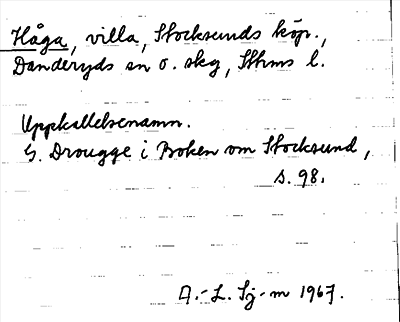 Håga, villa, Stocksunds köp.,
Danderyds sn o. skg, Sthms l.
Uppkallelsenamn.
G. Drougge i Boken om Stocksund,
s. 98.
A.-L. Sj-m 1967.